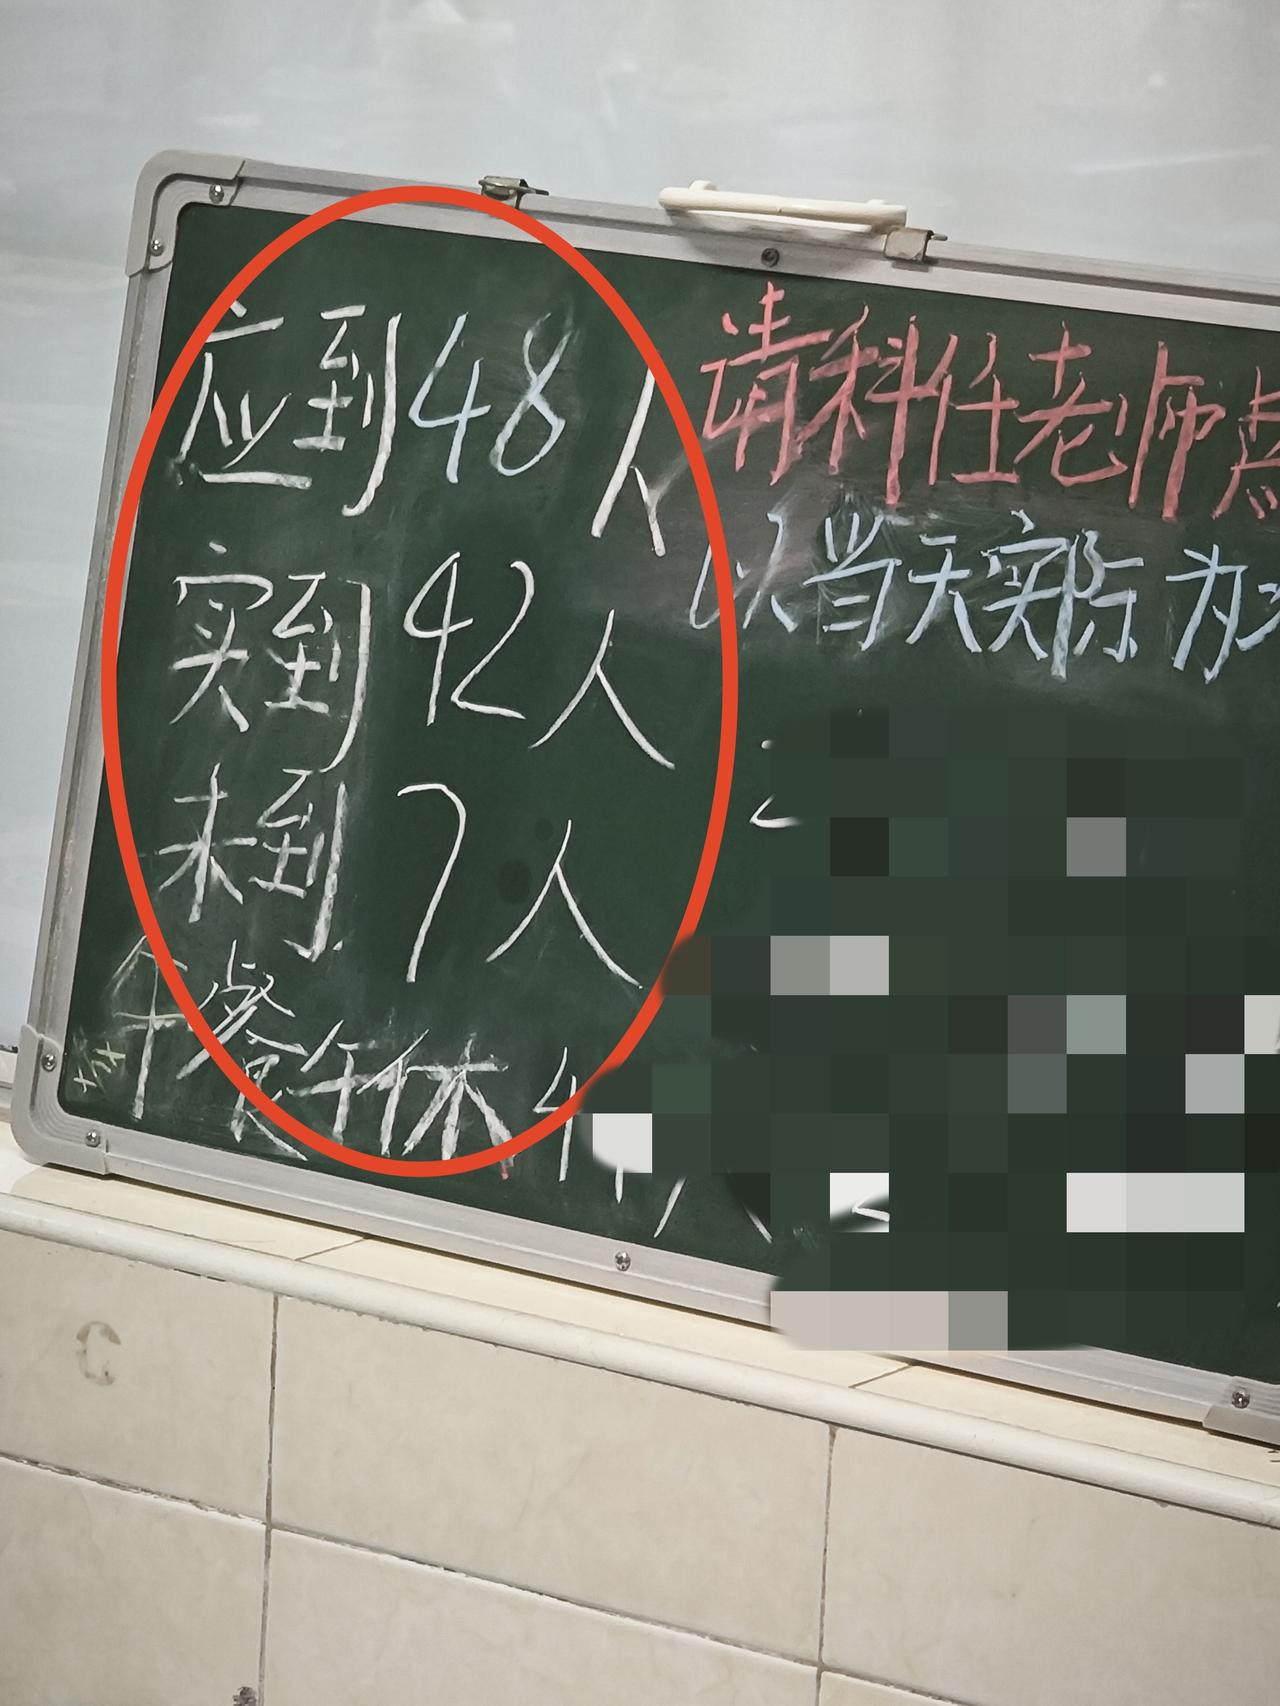 应到48人
实到42人
未到7人
午餐午休4
请科任老师点
以当天实际为
C